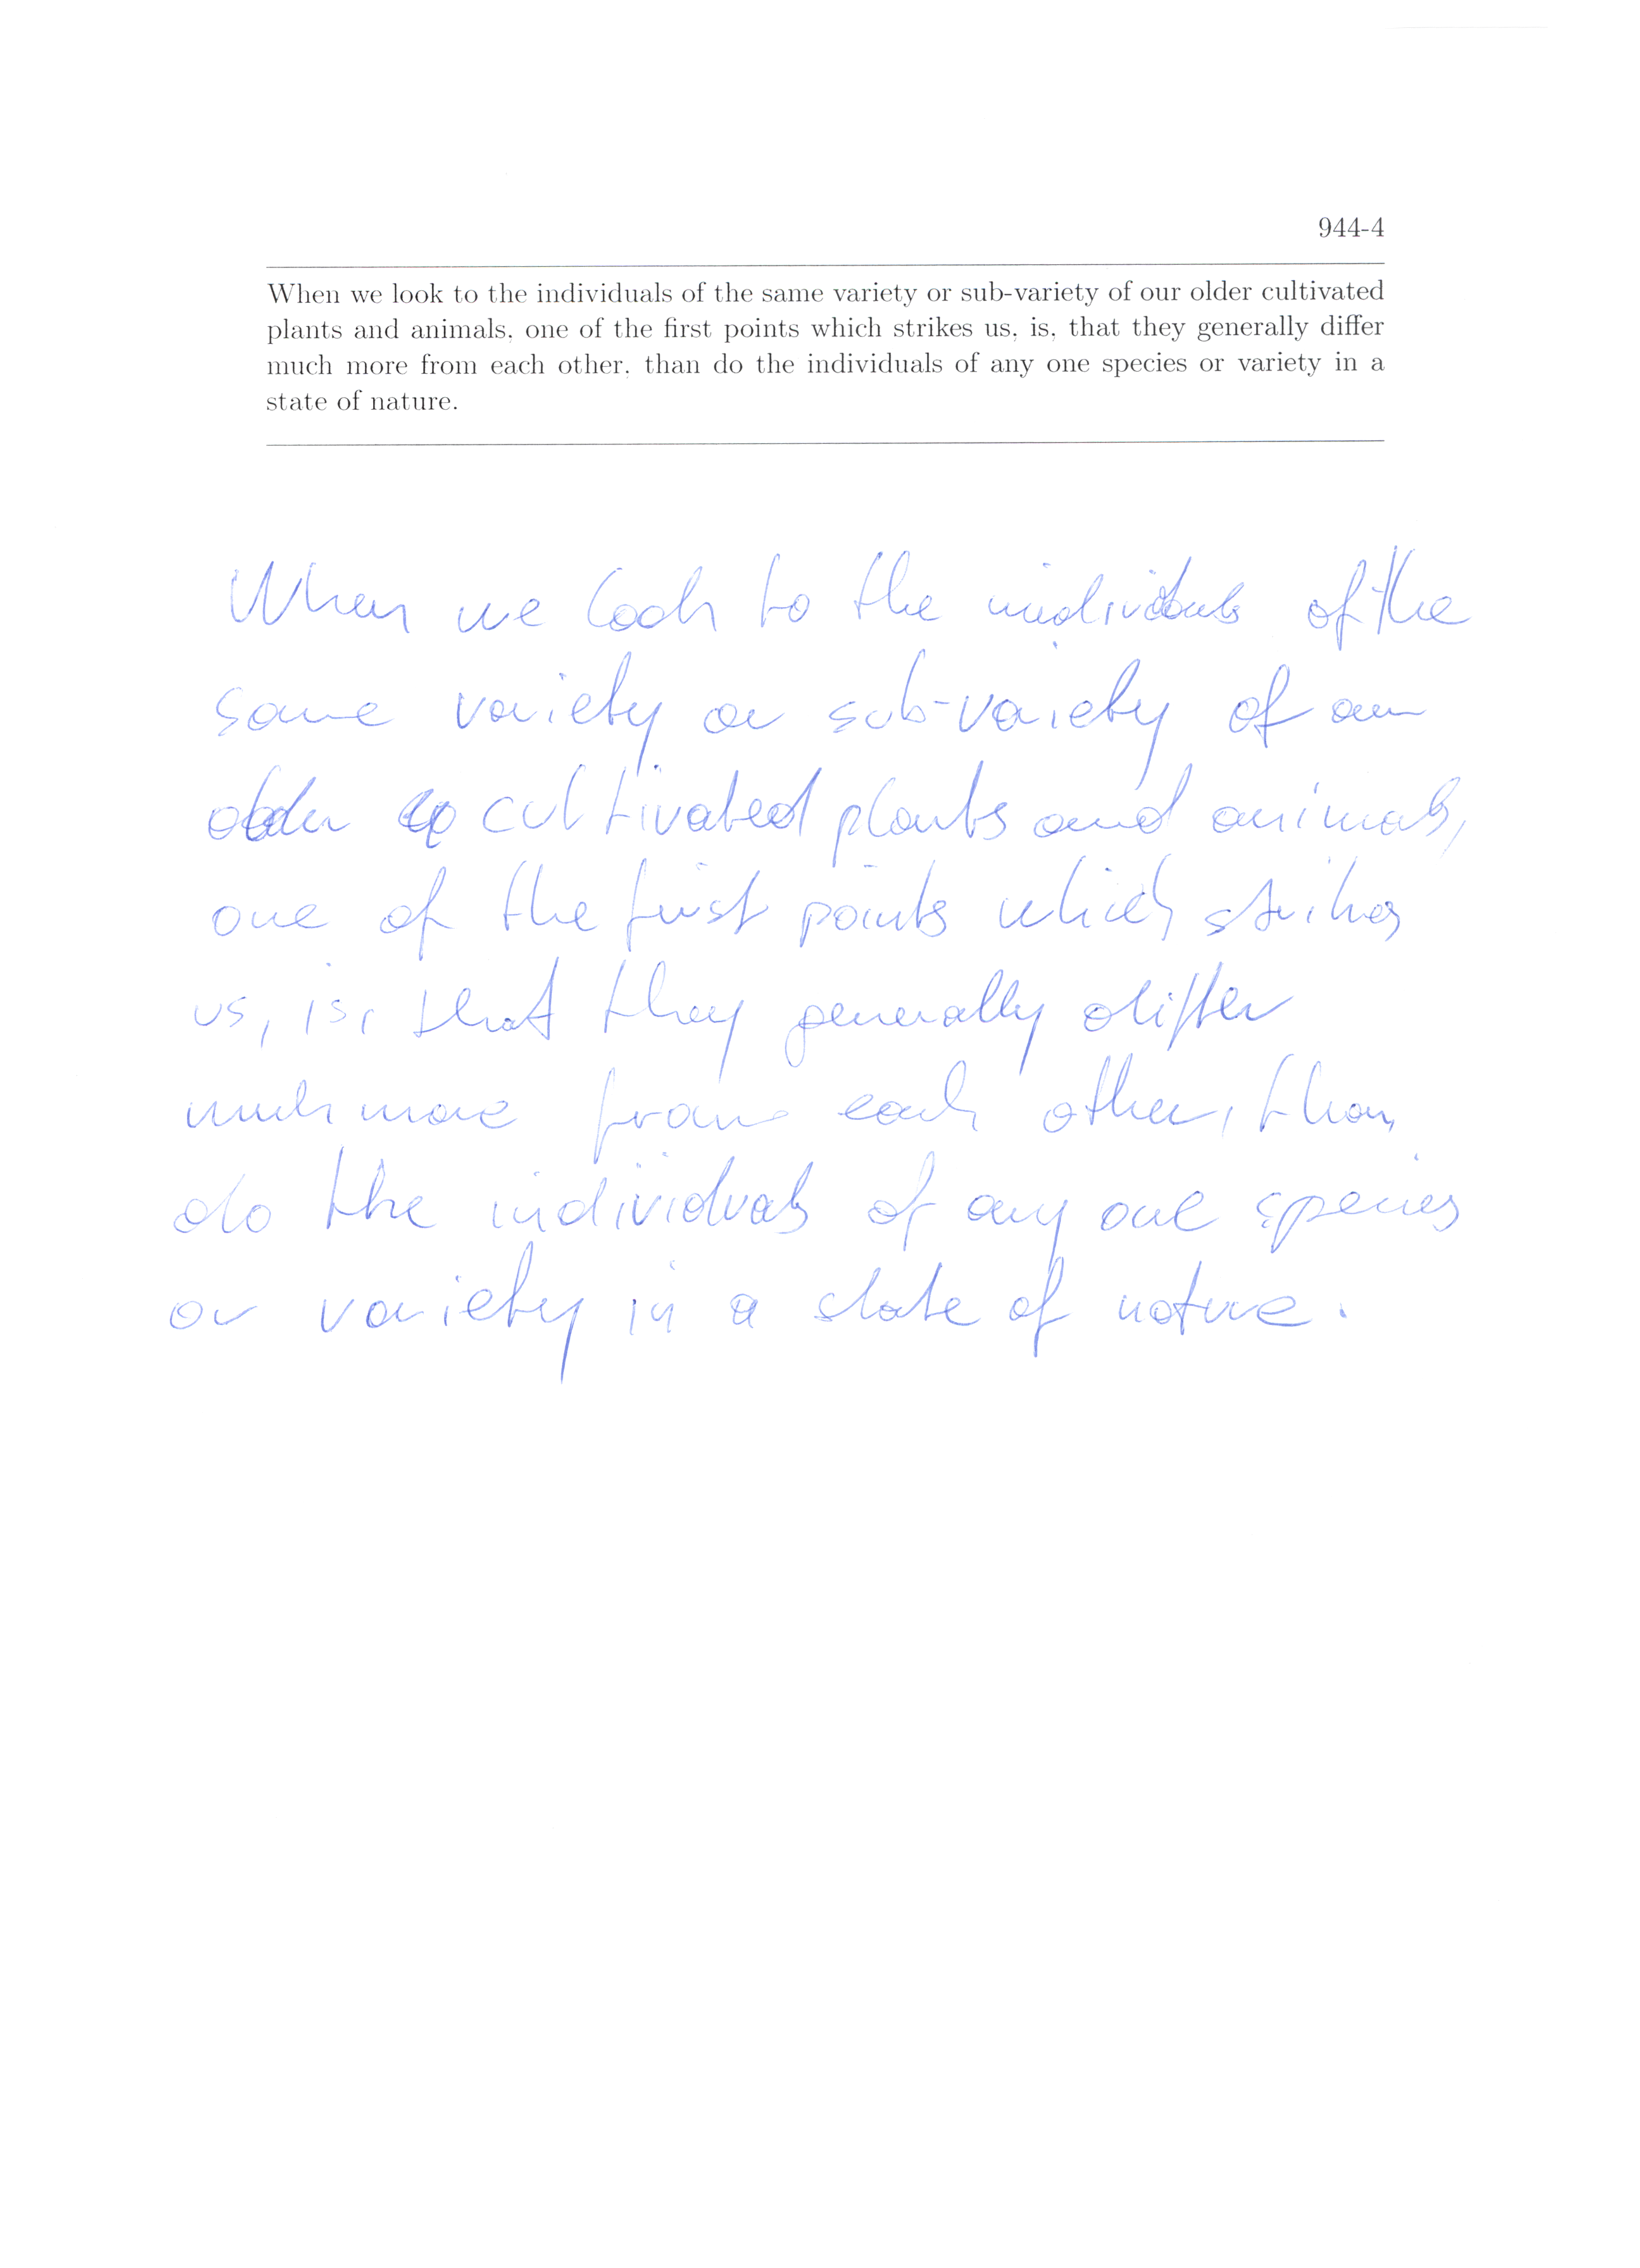 944-4
When we look to the individuals of the same variety or sub-variety of our older cultivated
plants and animals, one of the first points which strikes us, is, that they generally differ
much more from each other, than do the individuals of any one species or variety in a
state of nature.
When we look to the individuals of the
same variety or sub-variety of our
older cultivated plants and animals,
one of the first points which strikes
us, is, that they generally differ
much more from each other, than
do the individuals of any one species
or variety in a state of nature.